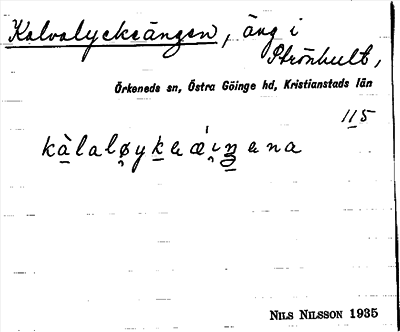 Kalvalyckeängen, äng i
Strönhult,
Örkeneds sn, Östra Göinge hd, Kristianstads län
115
NILS NILSSON 1935